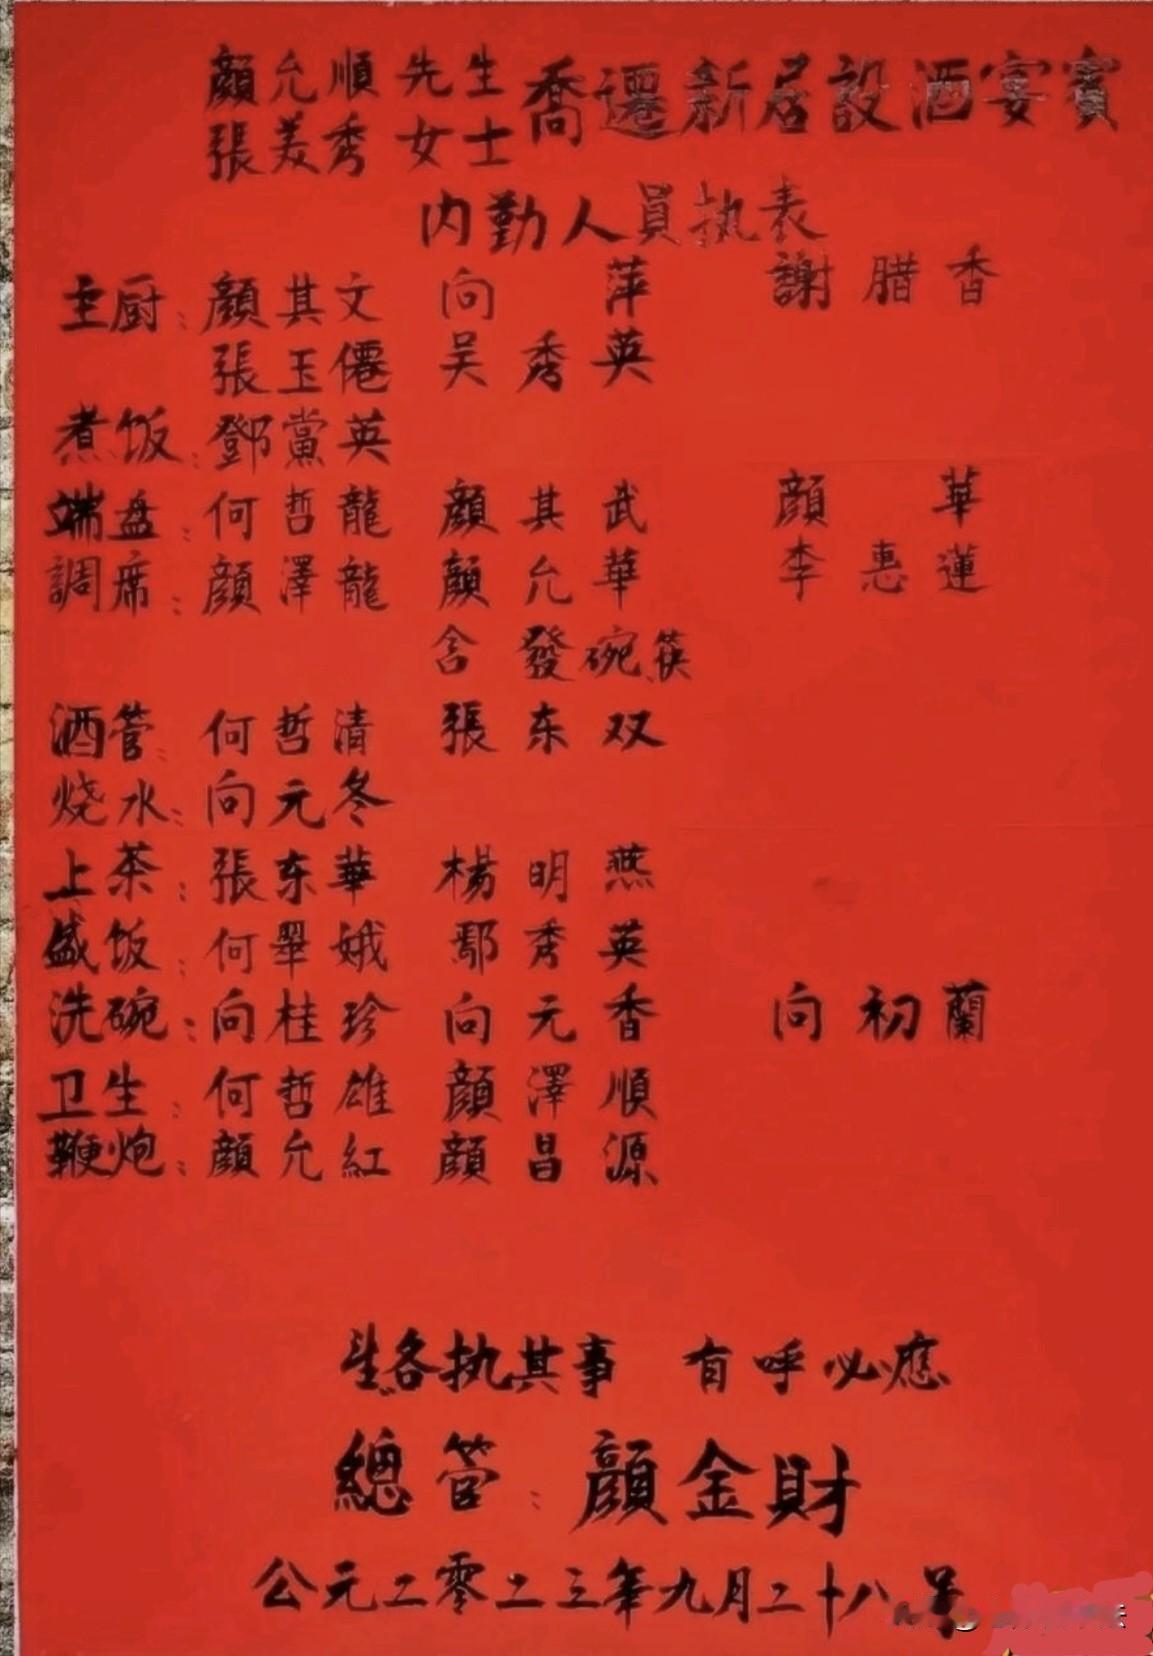 顔允順 先生
張美秀 女士
喬遷新居設酒宴賓
内勤人員执表
主厨：顔其文 向萍 謝腊香
張玉僊 吴秀英
煮饭：鄧黨英
端盘：何哲龍 顔其武 顔華
調席：顔澤龍 顔允華 李惠蓮
含發碗筷
酒管：何哲清 張东双
烧水：向元冬
上茶：張东華 楊明燕
盛饭：何翠娥 鄢秀英
洗碗：向桂珍 向元香 向初蘭
卫生：何哲雄 顔澤順
鞭炮：顔允紅 顔昌源
各执其事 有呼必應
總管：顔金財
公元二零二三年九月二十八号